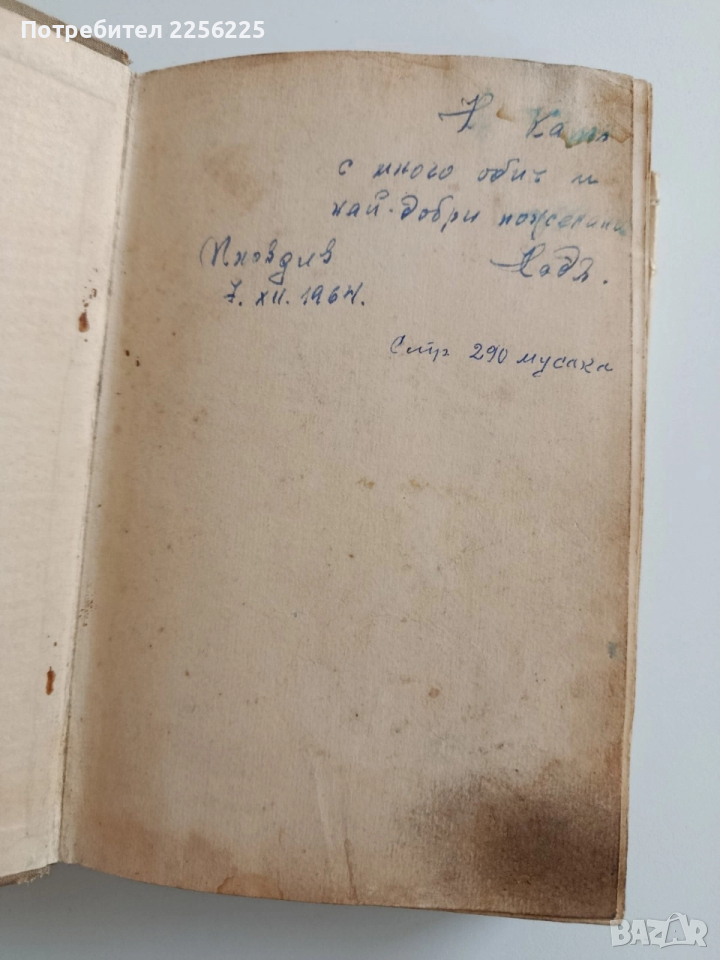 Потребител 2256225
с много обич и
най-добри пожелания
Пловдив
7. XII. 1964.
Стр. 290 мусака
BAZAR